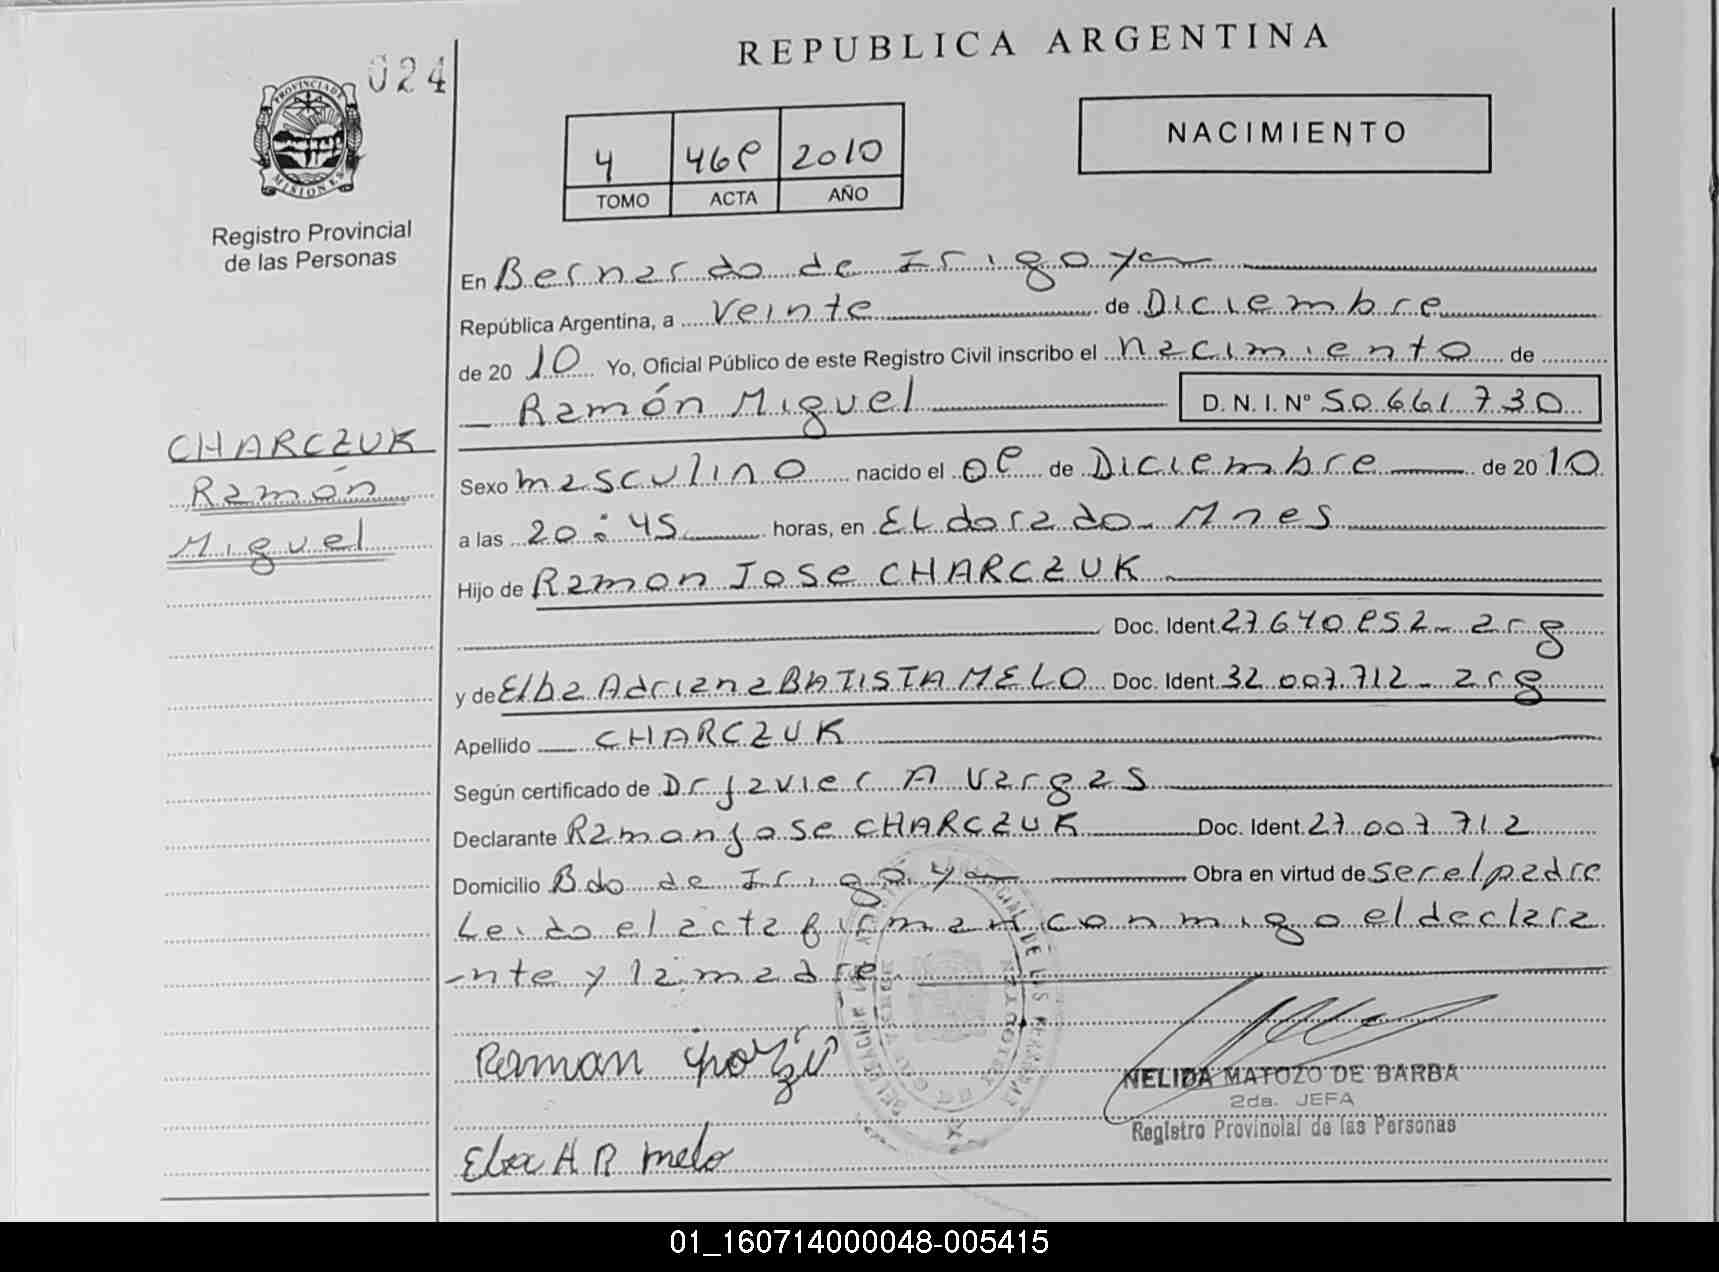 024
REPUBLICA ARGENTINA
PROVINCIA DE MISIONES
Registro Provincial
de las Personas
4 469 2010
TOMO ACTA AÑO
NACIMIENTO
En Bernardo de Irigoyen
República Argentina, a veinte de Diciembre
de 2010 Yo, Oficial Público de este Registro Civil inscribo el nacimiento de
Ramón Miguel D.N.I.Nº 50.661.730
CHARCZUK
Ramón
Miguel
Sexo masculino nacido el 09 de Diciembre de 2010
a las 20:45 horas, en ELdorado Mnes
Hijo de Ramon Jose CHARCZUK
Doc. Ident. 27640952 - arg
y de Elba Adriana BATISTA MELO Doc. Ident. 32.007.712 - arg
Apellido CHARCZUK
Según certificado de Dr Javier A Vargas
Declarante Ramon Jose CHARCZUK Doc. Ident. 27.007.712
Domicilio Bdo de Irigoyen Obra en virtud de ser el padre
Leido el acta firman conmigo el declara
-nte y la madre
Raman
NELIDA MATOZO DE BARBA
2da. JEFA
Registro Provincial de las Personas
Elba A B melo
01_160714000048-005415